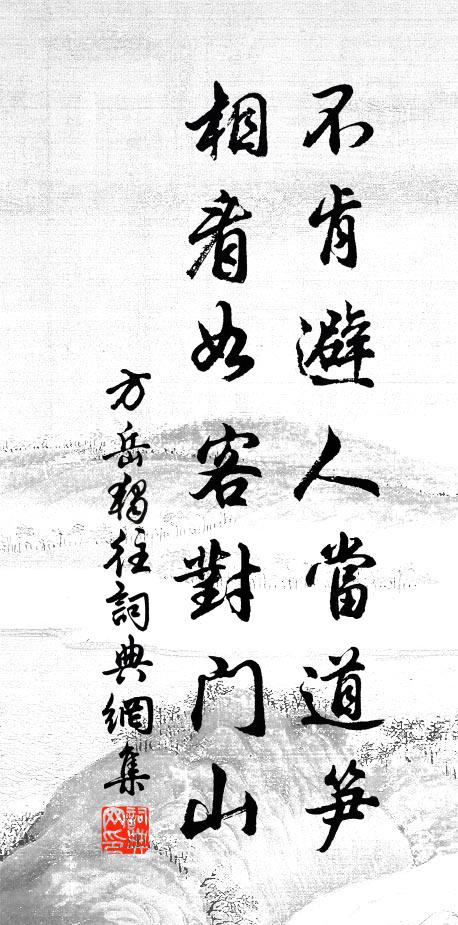 不肯避人當道笋
相看如客對門山
方岳獨往詞典網集